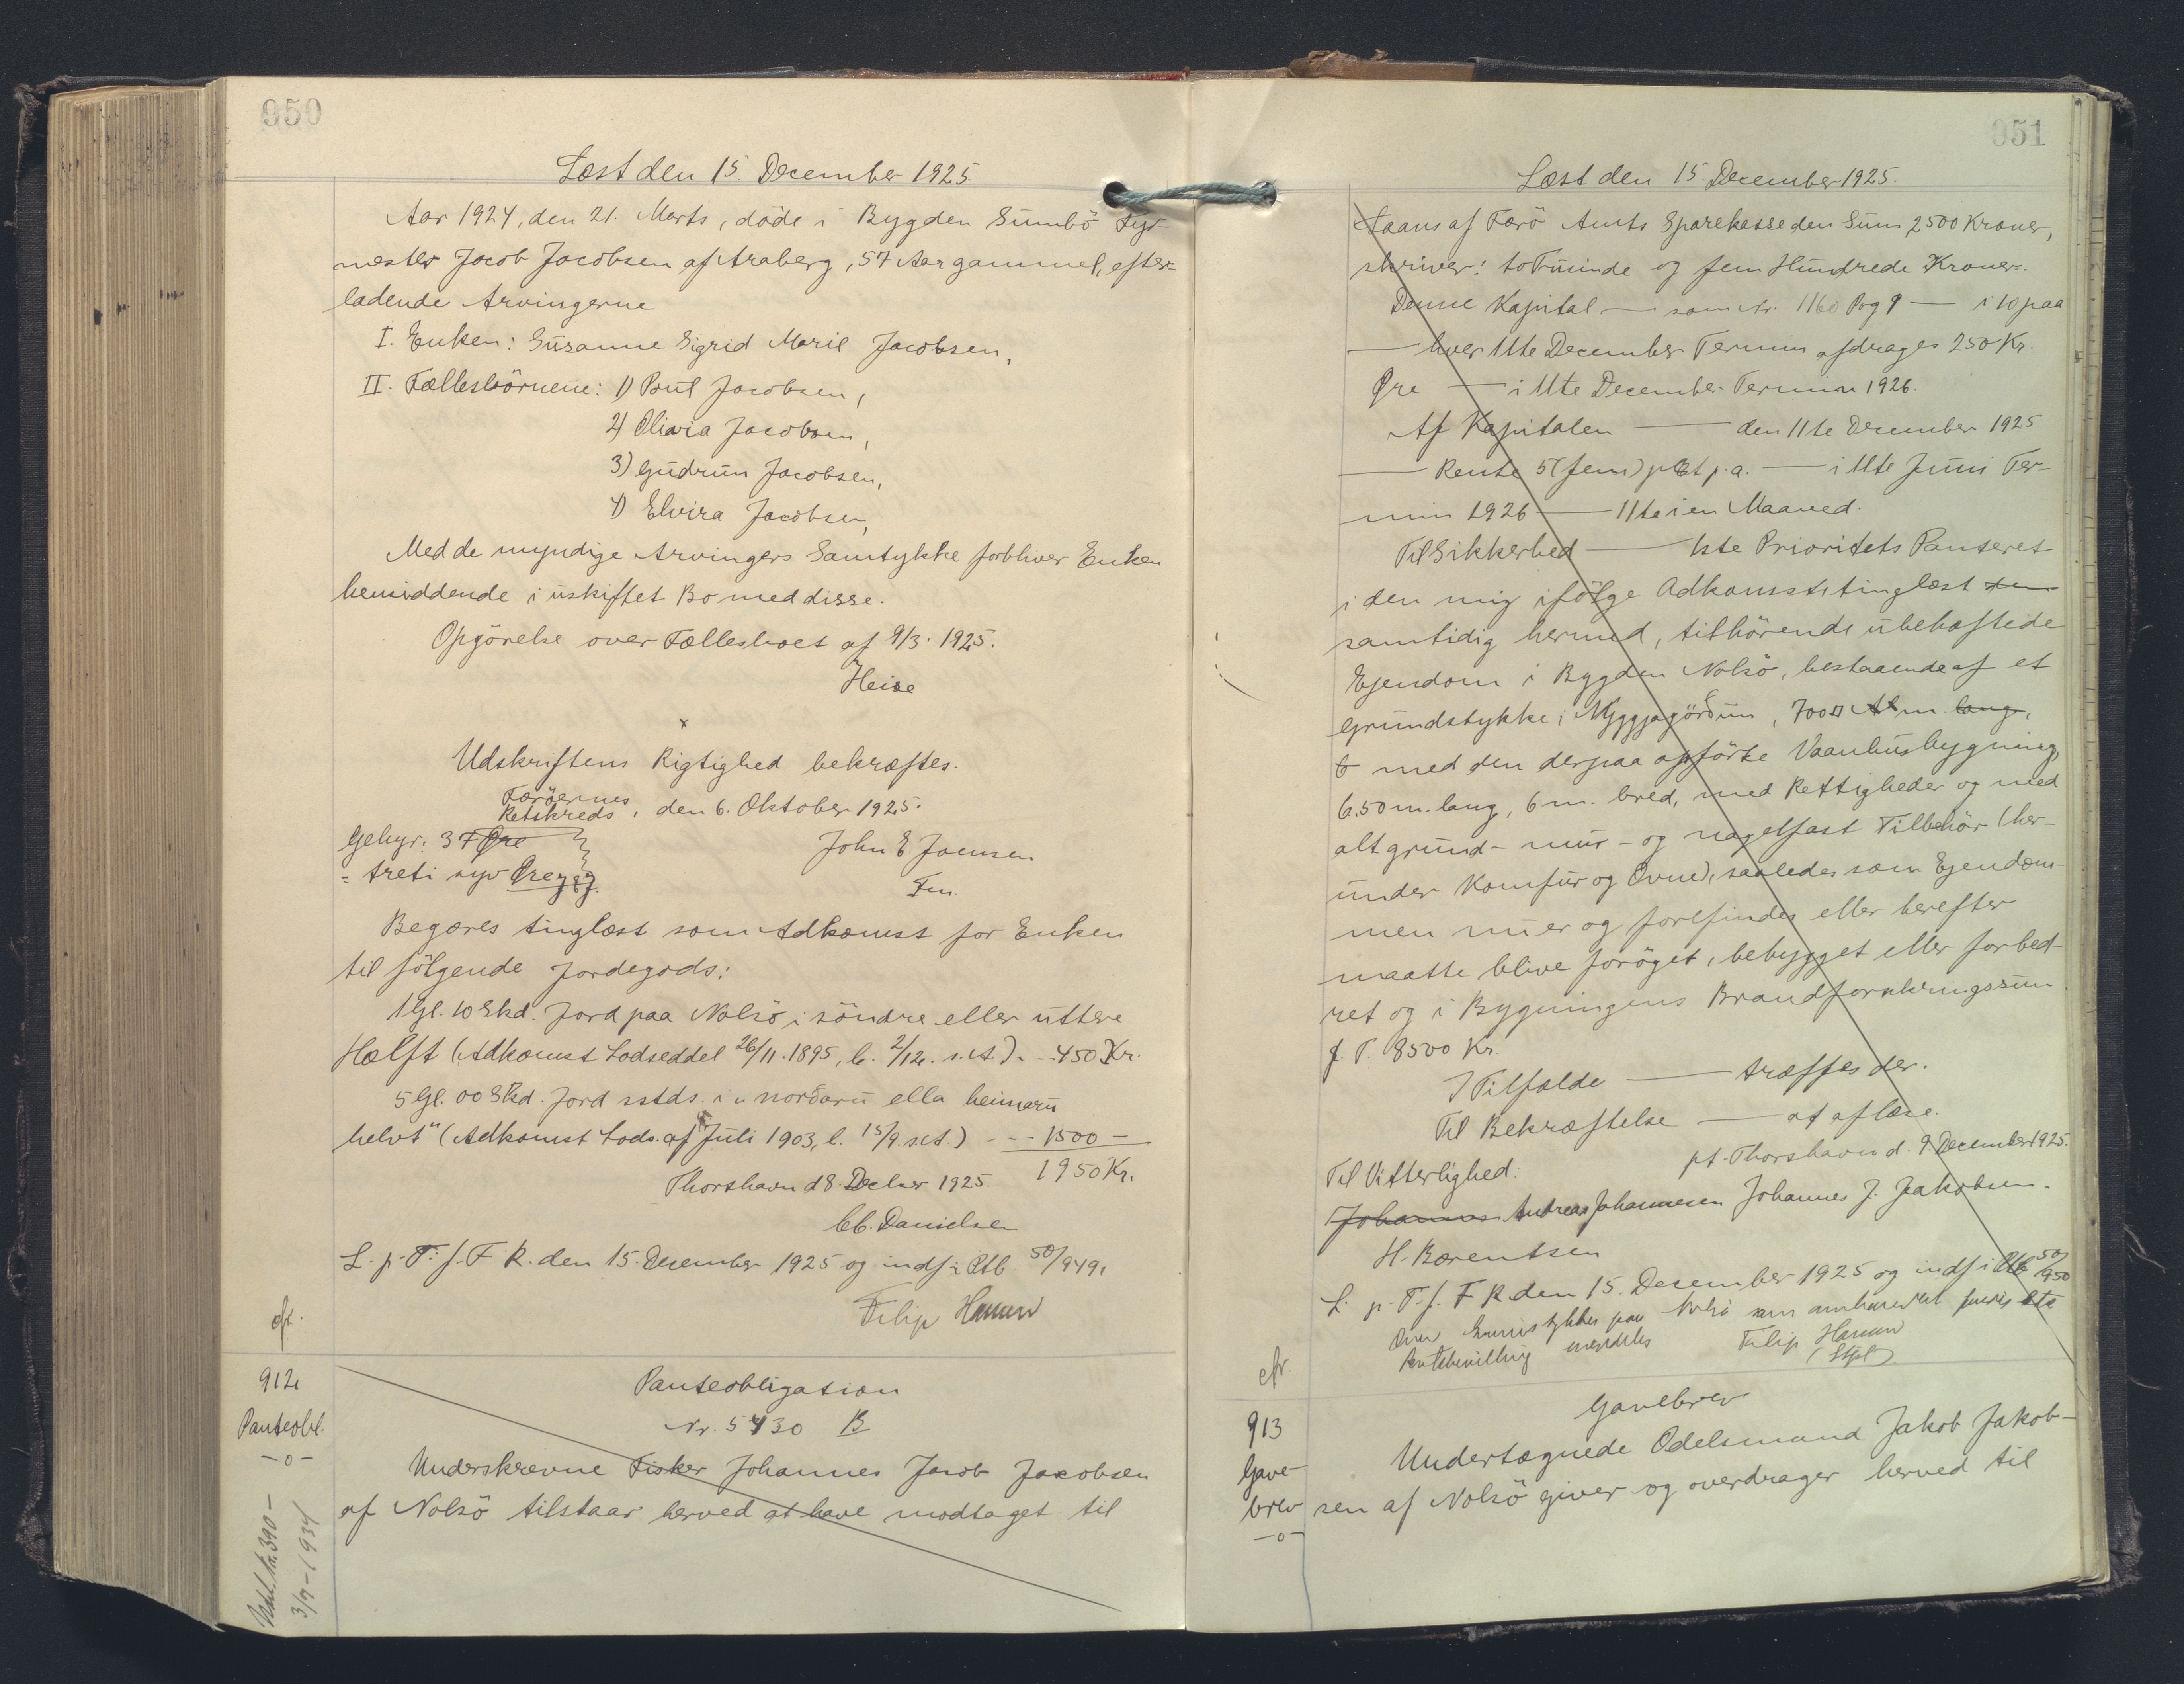 950
Læst den 15. December 1925.
Aar 1924, den 21. Marts, döde i Bygden Sumbö Fyr-
mester Jacob Jacobsen af Araberg, 57 Aar gammel, efter-
ladende Arvingerne
I. Enken: Susanne Sigrid Marie Jacobsen,
II. Fællesbörnene: 1) Poul Jacobsen,
2) Olivia Jacobsen,
3) Gudrun Jacobsen,
4) Elvira Jacobsen,
Med de myndige Arvingers Samtykke forbliver Enken
hensiddende i uskiftet Bo med disse.
Opgörelse over Fællesboet af 9/3. 1925.
Heise
x
Udskriftens Rigtighed bekræftes.
Færöernes
Retskreds, den 6. Oktober 1925.
Gebyr: 37 Øre
= treti syv Øre
John E Joensen
Fm
Begæres tinglæst som Adkomst for Enken
til fölgende Jordegods:
1 Gl. 10 Skd. Jord paa Nolsö i söndre eller uttere
Hælft (Adkomst Lodseddel 26/11. 1895, l. 2/12. s. A.) - - 450 Kr.
5 Gl. 00 Skd. Jord sstds. i "norðaru ella heimaru
helvt" (Adkomst Lods. af Juli 1903, l. 15/9. s.A.) - - - 1500 -
1950 Kr.
Thorshavn d 8. Decber 1925.
Cb. Danielsen
L. p. T. f. F R. den 15. December 1925 og indf. i Ptb. 50/949.
Filip Hansen
cfr.
912
Panteobl.
-o-
Panteobligation
Nr. 5430 B
Underskrevne Fisker Johannes Jacob Jacobsen
af Nolsö tilstaar herved at have modtaget til
Nr. 390 -
3/7 - 1934
951
Læst den 15. December 1925.
Laans af Færö Amts Sparekasse den Sum 2500 Kroner,
skriver: to Tusinde og fem Hundrede Kroner.
Denne Kapital — som Nr. 1160 Pag 9 — i 10 paa
— hver 11te December Termin afdrages 250 Kr.
Øre — i 11te December Termin 1926.
Af Kapitalen — den 11te December 1925
— Rente 5 (fem) pCt p.a. — i 11te Juni Ter-
min 1926 — 11te i en Maaned.
Til Sikkerhed — 1ste Prioritets Panteret
i den mig ifölge Adkomst tinglæst den
samtidig hermed, tilhörende ubehæftede
Ejendom i Bygden Nolsö, bestaaende af et
Grundstykke i Nyggjagörðun, 700 □ Alm lang,
6 med den derpaa opförte Vaanhusbygning,
6.50 m. lang, 6 m. bred, med Rettigheder og med
alt grund- mur- og nagelfast Tilbehör (her-
under Komfur og Ovne), saaledes som Ejendom-
men nu er og forefindes eller herefter
maatte blive foröget, bebygget eller forbed-
ret og i Bygningens Brandforsikringssum
f. T. 8500 Kr.
I Tilfælde — træffes der.
Til Bekræftelse — at aflæse.
pt. Thorshavn d. 9 December 1925.
Til Vitterlighed:
Johannes Andreas Johannesen Johannes J. Jakobsen.
H. Bærentsen
L. p. T. f. F R den 15. December 1925 og indf i Ptb 50/950
Filip Hansen
(Stpl)
cfr.
913
Gave-
brev
-o-
Gavebrev
Undertegnede Odelsmand Jakob Jakob-
sen af Nolsö giver og overdrager herved til